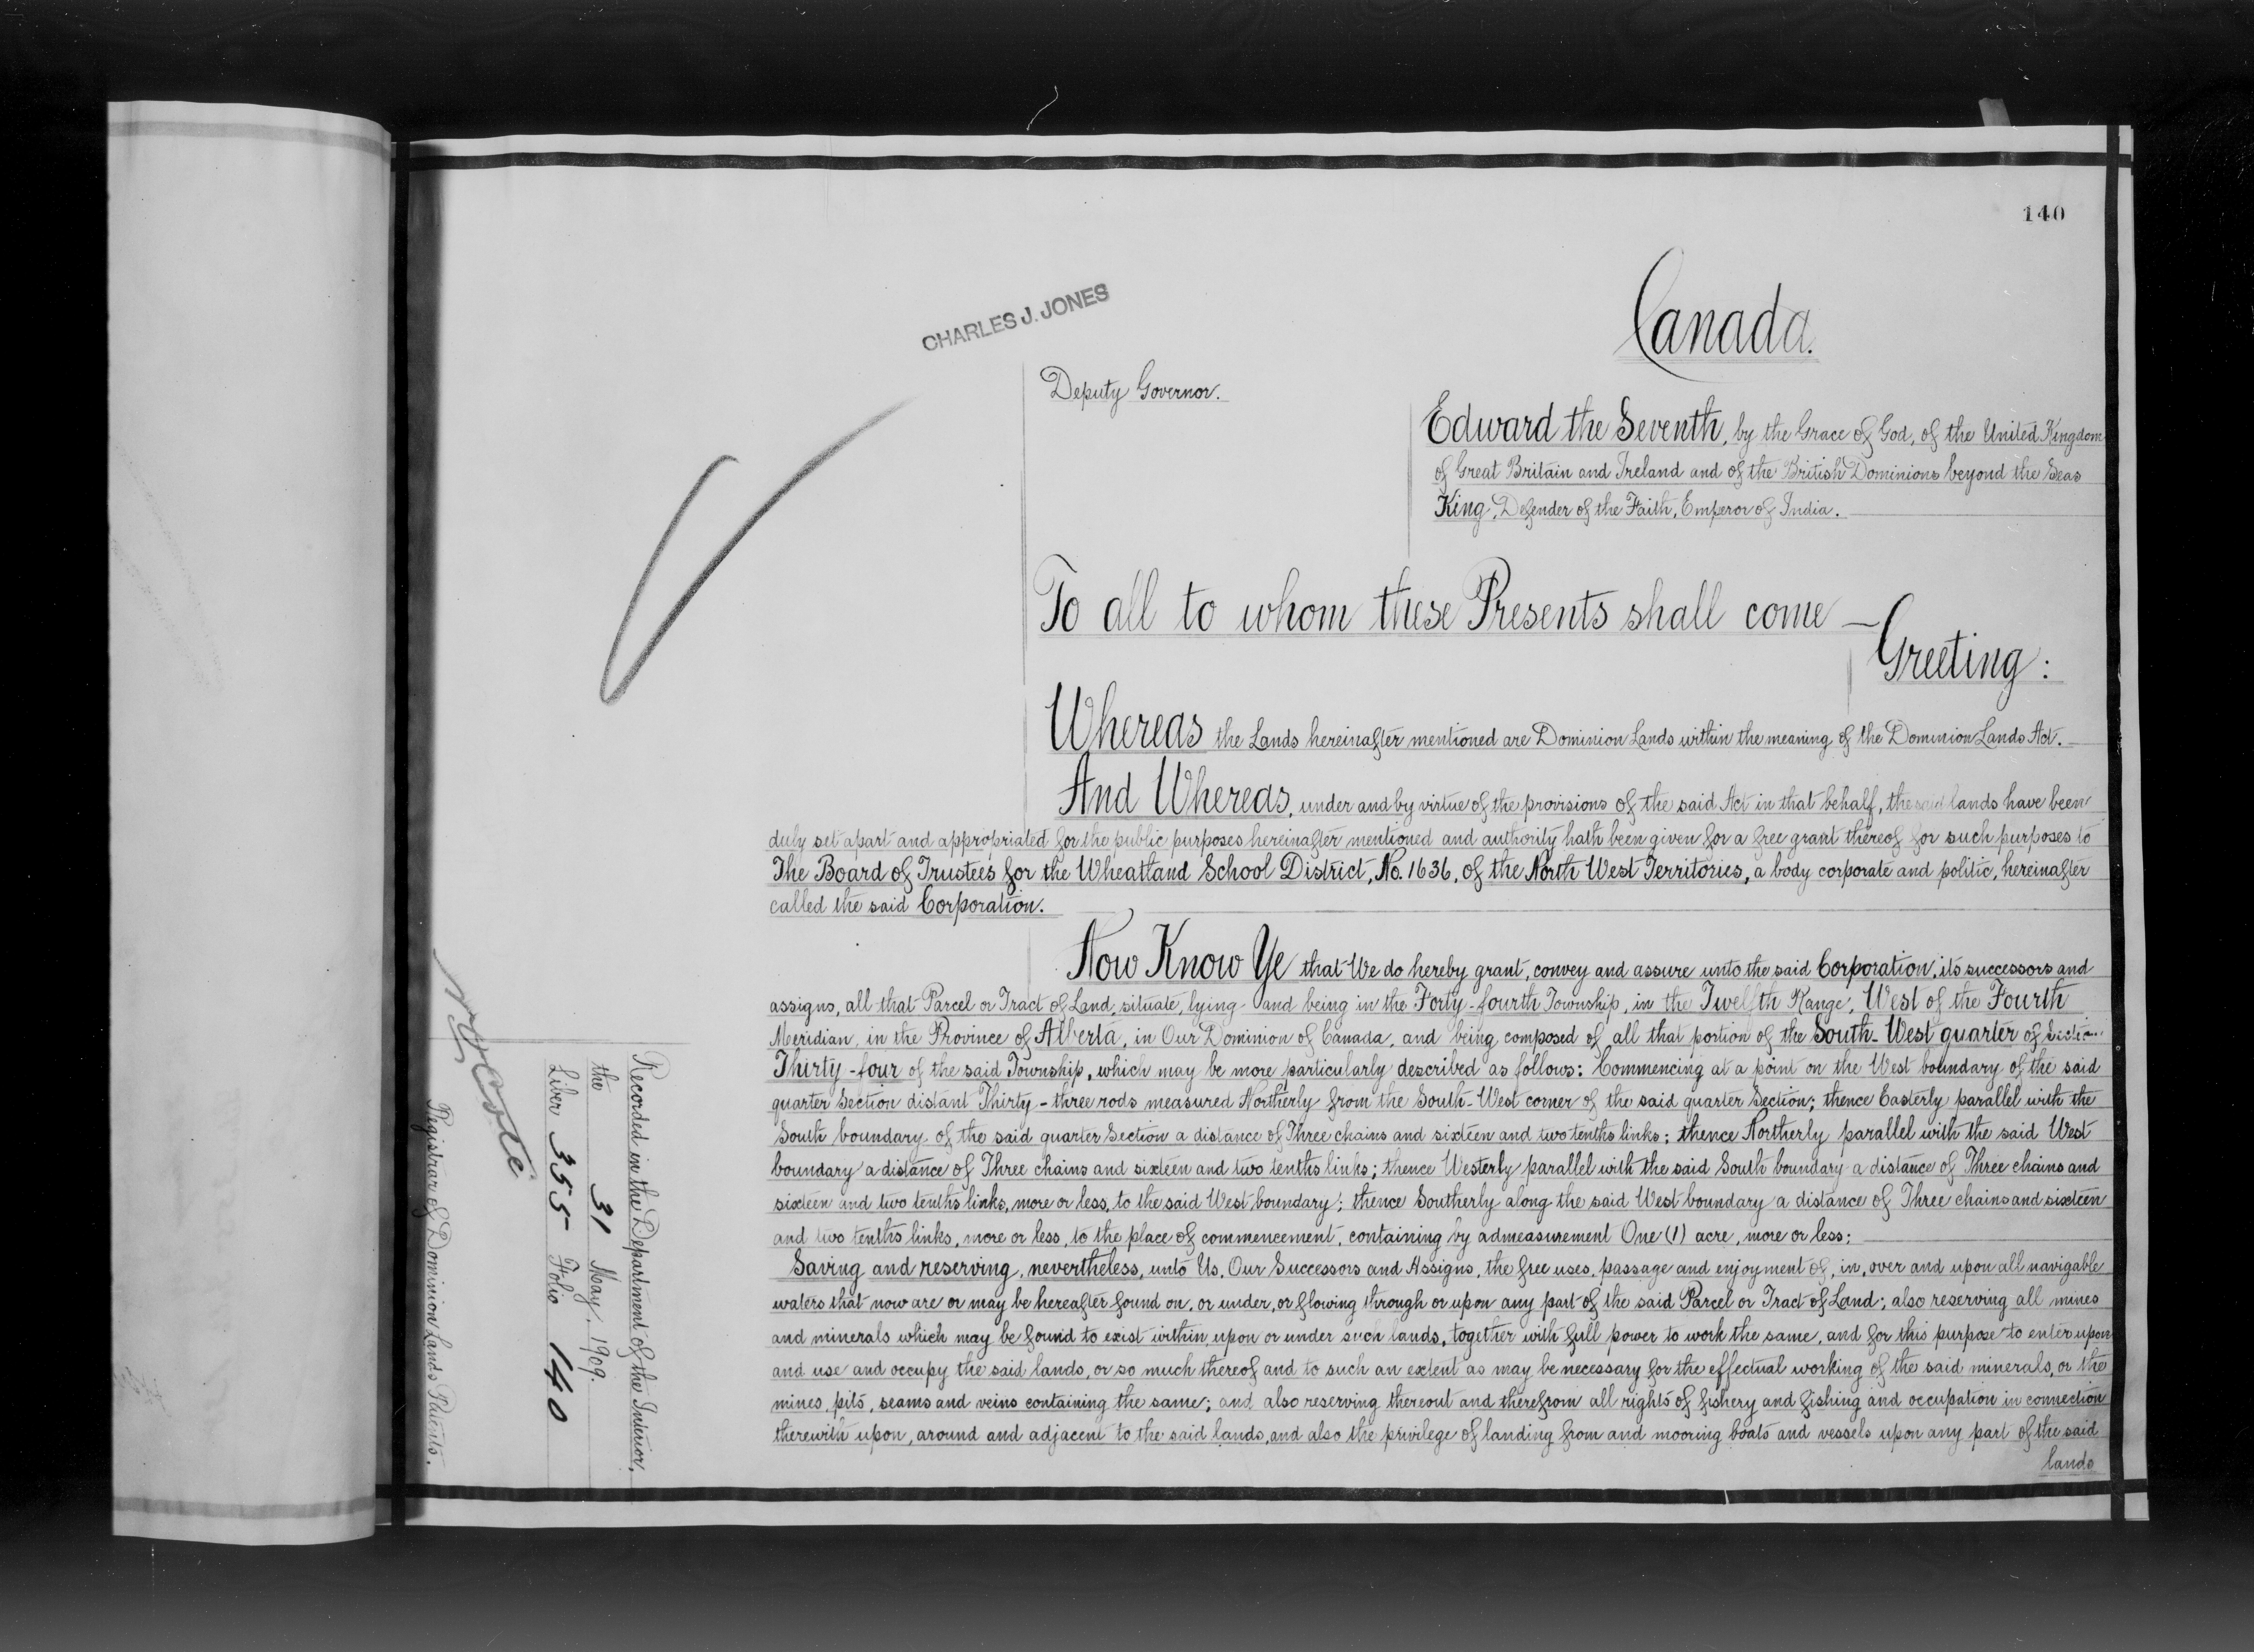 140
CHARLES J. JONES
Canada.
Deputy Governor.
Edward the Seventh, by the Grace of God, of the United Kingdom
of Great Britain and Ireland and of the British Dominions beyond the Seas
King, Defender of the Faith, Emperor of India.
To all to whom these Presents shall come —
Greeting:
Whereas the Lands hereinafter mentioned are Dominion Lands within the meaning of the Dominion Lands Act.
And Whereas, under and by virtue of the provisions of the said Act in that behalf, the said lands have been
duly set apart and appropriated for the public purposes hereinafter mentioned and authority hath been given for a free grant thereof for such purposes to
The Board of Trustees for the Wheatland School District, No. 1636, of the North West Territories, a body corporate and politic, hereinafter
called the said Corporation.
Now Know Ye that We do hereby grant, convey and assure unto the said Corporation, its successors and
assigns, all that Parcel or Tract of Land, situate, lying and being in the Forty-fourth Township, in the Twelfth Range, West of the Fourth
Meridian, in the Province of Alberta, in Our Dominion of Canada, and being composed of all that portion of the South-West quarter of Section
Thirty-four of the said Township, which may be more particularly described as follows: Commencing at a point on the West boundary of the said
quarter Section distant Thirty-three rods measured Northerly from the South-West corner of the said quarter Section; thence Easterly parallel with the
South boundary of the said quarter Section a distance of Three chains and sixteen and two tenths links; thence Northerly parallel with the said West
boundary a distance of Three chains and sixteen and two tenths links; thence Westerly parallel with the said South boundary a distance of Three chains and
sixteen and two tenths links, more or less, to the said West boundary; thence Southerly along the said West boundary a distance of Three chains and sixteen
and two tenths links, more or less, to the place of commencement, containing by admeasurement One (1) acre, more or less;
Saving and reserving, nevertheless, unto Us, Our Successors and Assigns, the free uses, passage and enjoyment of, in, over and upon all navigable
waters that now are or may be hereafter found on, or under, or flowing through or upon any part of the said Parcel or Tract of Land; also reserving all mines
and minerals which may be found to exist within upon or under such lands, together with full power to work the same, and for this purpose to enter upon
and use and occupy the said lands, or so much thereof and to such an extent as may be necessary for the effectual working of the said minerals, or the
mines, pits, seams and veins containing the same; and also reserving thereout and therefrom all rights of fishery and fishing and occupation in connection
therewith upon, around and adjacent to the said lands, and also the privilege of landing from and mooring boats and vessels upon any part of the said
lands
Recorded in the Department of the Interior,
the 31 May, 1909.
Liber 355 Folio 140
Registrar of Dominion Lands Patents.